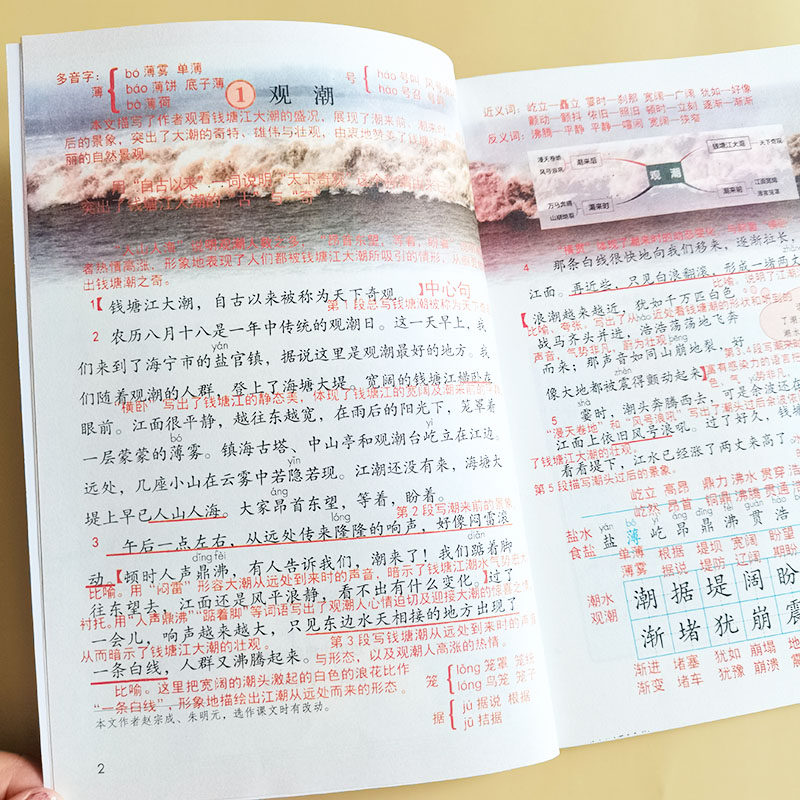 多音字：
薄
bó 薄雾 单薄
báo 薄饼 底子薄
bò 薄荷
号
háo 号叫
hào 号召 号码
1 观潮
本文描写了作者观看钱塘江大潮的盛况，展现了潮来前、潮来时
后的景象，突出了大潮的奇特、雄伟与壮观，由衷地赞美了
丽的自然景观。
用“自古以来”
突出了钱塘江大潮的“古”与“奇”
者热情高涨，形象地表现了人们都被钱塘江大潮所吸引的情形，从
出钱塘江之奇。
1【钱塘江大潮，自古以来被称为天下奇观。】中心句
第1段总写钱塘潮被称为天下奇
2 农历八月十八是一年中传统的观潮日。这一天早上，我
yán
们来到了海宁市的盐官镇，据说这里是观潮最好的地方。我
们随着观潮的人群，登上了海塘大堤。宽阔的钱塘江横卧在
“横卧”写出了钱塘江的静态美，体现了钱塘江的宽阔及潮来前
眼前。江面很平静，越往东越宽，在雨后的阳光下，笼罩着
bó
一层蒙蒙的薄雾。镇海古塔、中山亭和观潮台屹立在江边。
yǐn
远处，几座小山在云雾中若隐若现。江潮还没有来，海塘大
áng
堤上早已人山人海。大家昂首东望，等着，盼着。
第2段写潮来前的景象
lóng
3 午后一点左右，从远处传来隆隆的响声，好像闷雷滚
dǐng fèi diǎn
动。【顿时人声鼎沸，有人告诉我们，潮来了！我们踮着脚
比喻。用“闷雷”形容大潮从远处到来时的声音，暗示了钱塘江潮水气势
往东望去，江面还是风平浪静，看不出有什么变化。】过了
衬托。用“人声鼎沸”“踮着脚”等词语写出了观潮人心情迫切及迎接大潮的
一会儿，响声越来越大，只见东边水天相接的地方出现了
从而暗示了钱塘江大潮的壮观。
第3段写钱塘潮从远处到来时的声音
一条白线，人群又沸腾起来。与形态，以及观潮人高涨的热情。
比喻。这里把宽阔的潮头激起的白色的浪花比作
“一条白线”，形象地描绘出江潮从远处而来的形态。
笼
lóng 笼罩 笼统
lóng 鸟笼 笼子
据
jù 据说 根据
jū 拮据
本文作者赵宗成、朱明元，选作课文时有改动。
2
近义词：屹立—矗立 霎时—刹那 宽阔—广阔 犹如—好像
颤动—颤抖 依旧—照旧 顿时—立刻 逐渐—渐渐
反义词：沸腾—平静 平静—喧闹 宽阔—狭窄
观潮
漫天卷地
风号浪吼
潮来后
万马奔腾
山崩地裂
潮来时
钱塘江大潮
天下奇观
潮来前
江面宽阔
薄雾笼罩
4 那条白线很快地向我们移来，逐渐拉长，
江面。再近些，只见白浪翻滚，形成一堵两丈
比喻，说明了江潮
浪潮越来越近，犹如千万匹白色
比喻、夸张，写出了从近处看钱塘潮的形状和
战马齐头并进，浩浩荡荡地飞奔
声音，气势非凡，蔚为壮观。
bēng
而来；那声音如同山崩地裂，好
第3、4段写潮来
zhèn
像大地都被震得颤动起来。】
富有感染力的语言把
色、气势非凡
shà
5 霎时，潮头奔腾西去，可是余波还在
“漫天卷地”和“风号浪吼”写出了潮头过后余波
江面上依旧风号浪吼。过了好久，钱塘
了钱塘江大潮的壮观。
看看堤下，江水已经涨了两丈来高了。
第5段描写潮头过后的景象。
屹立 高昂 鼎力 沸水 贯穿 浩
屹然 昂首 铜鼎 沸腾 贯通
yán bó yì áng dǐng fèi guàn hào
盐水
食盐
盐 薄 屹 昂 鼎 沸 贯 浩
单薄 根据 堤坝 宽阔 盼望
薄雾 据说 堤防 辽阔 期盼
潮水
观潮
潮 据 堤 阔 盼
渐 堵 犹 崩 震
渐进 堵塞 犹如 崩塌 地
渐变 堵车 犹豫 崩溃 震